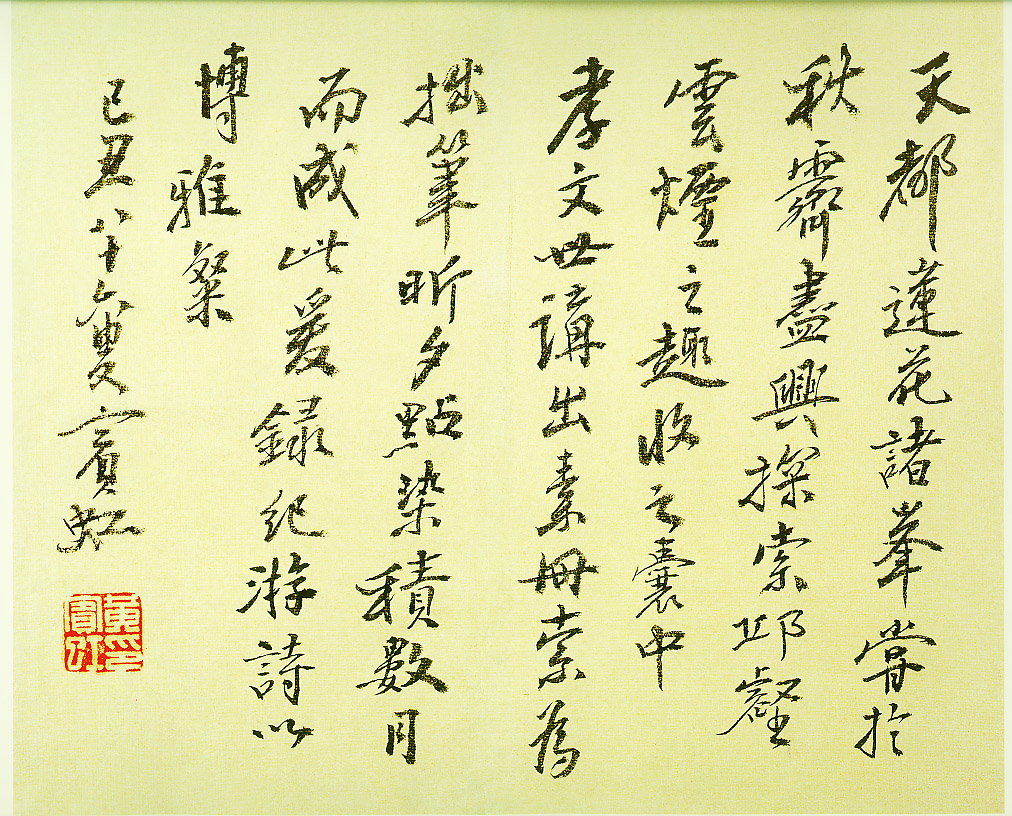 天都蓮花諸峯嘗於
秋霽盡興探索邱壑
雲煙之趣收之囊中
孝文世講出素冊索為
拙筆昕夕點染積數月
而成此爰錄紀游詩以
博雅粲
己丑八十六叟賓虹
黃賓虹印